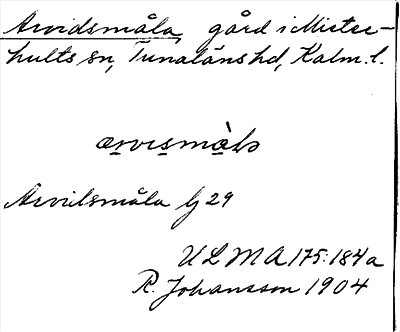 Arvidsmåla, gård i Mister-
hults sn, Tunaläns hd, Kalm. l.
Arvidsmåla lj 29
ULMA 175:184a
R. Johansson 1904